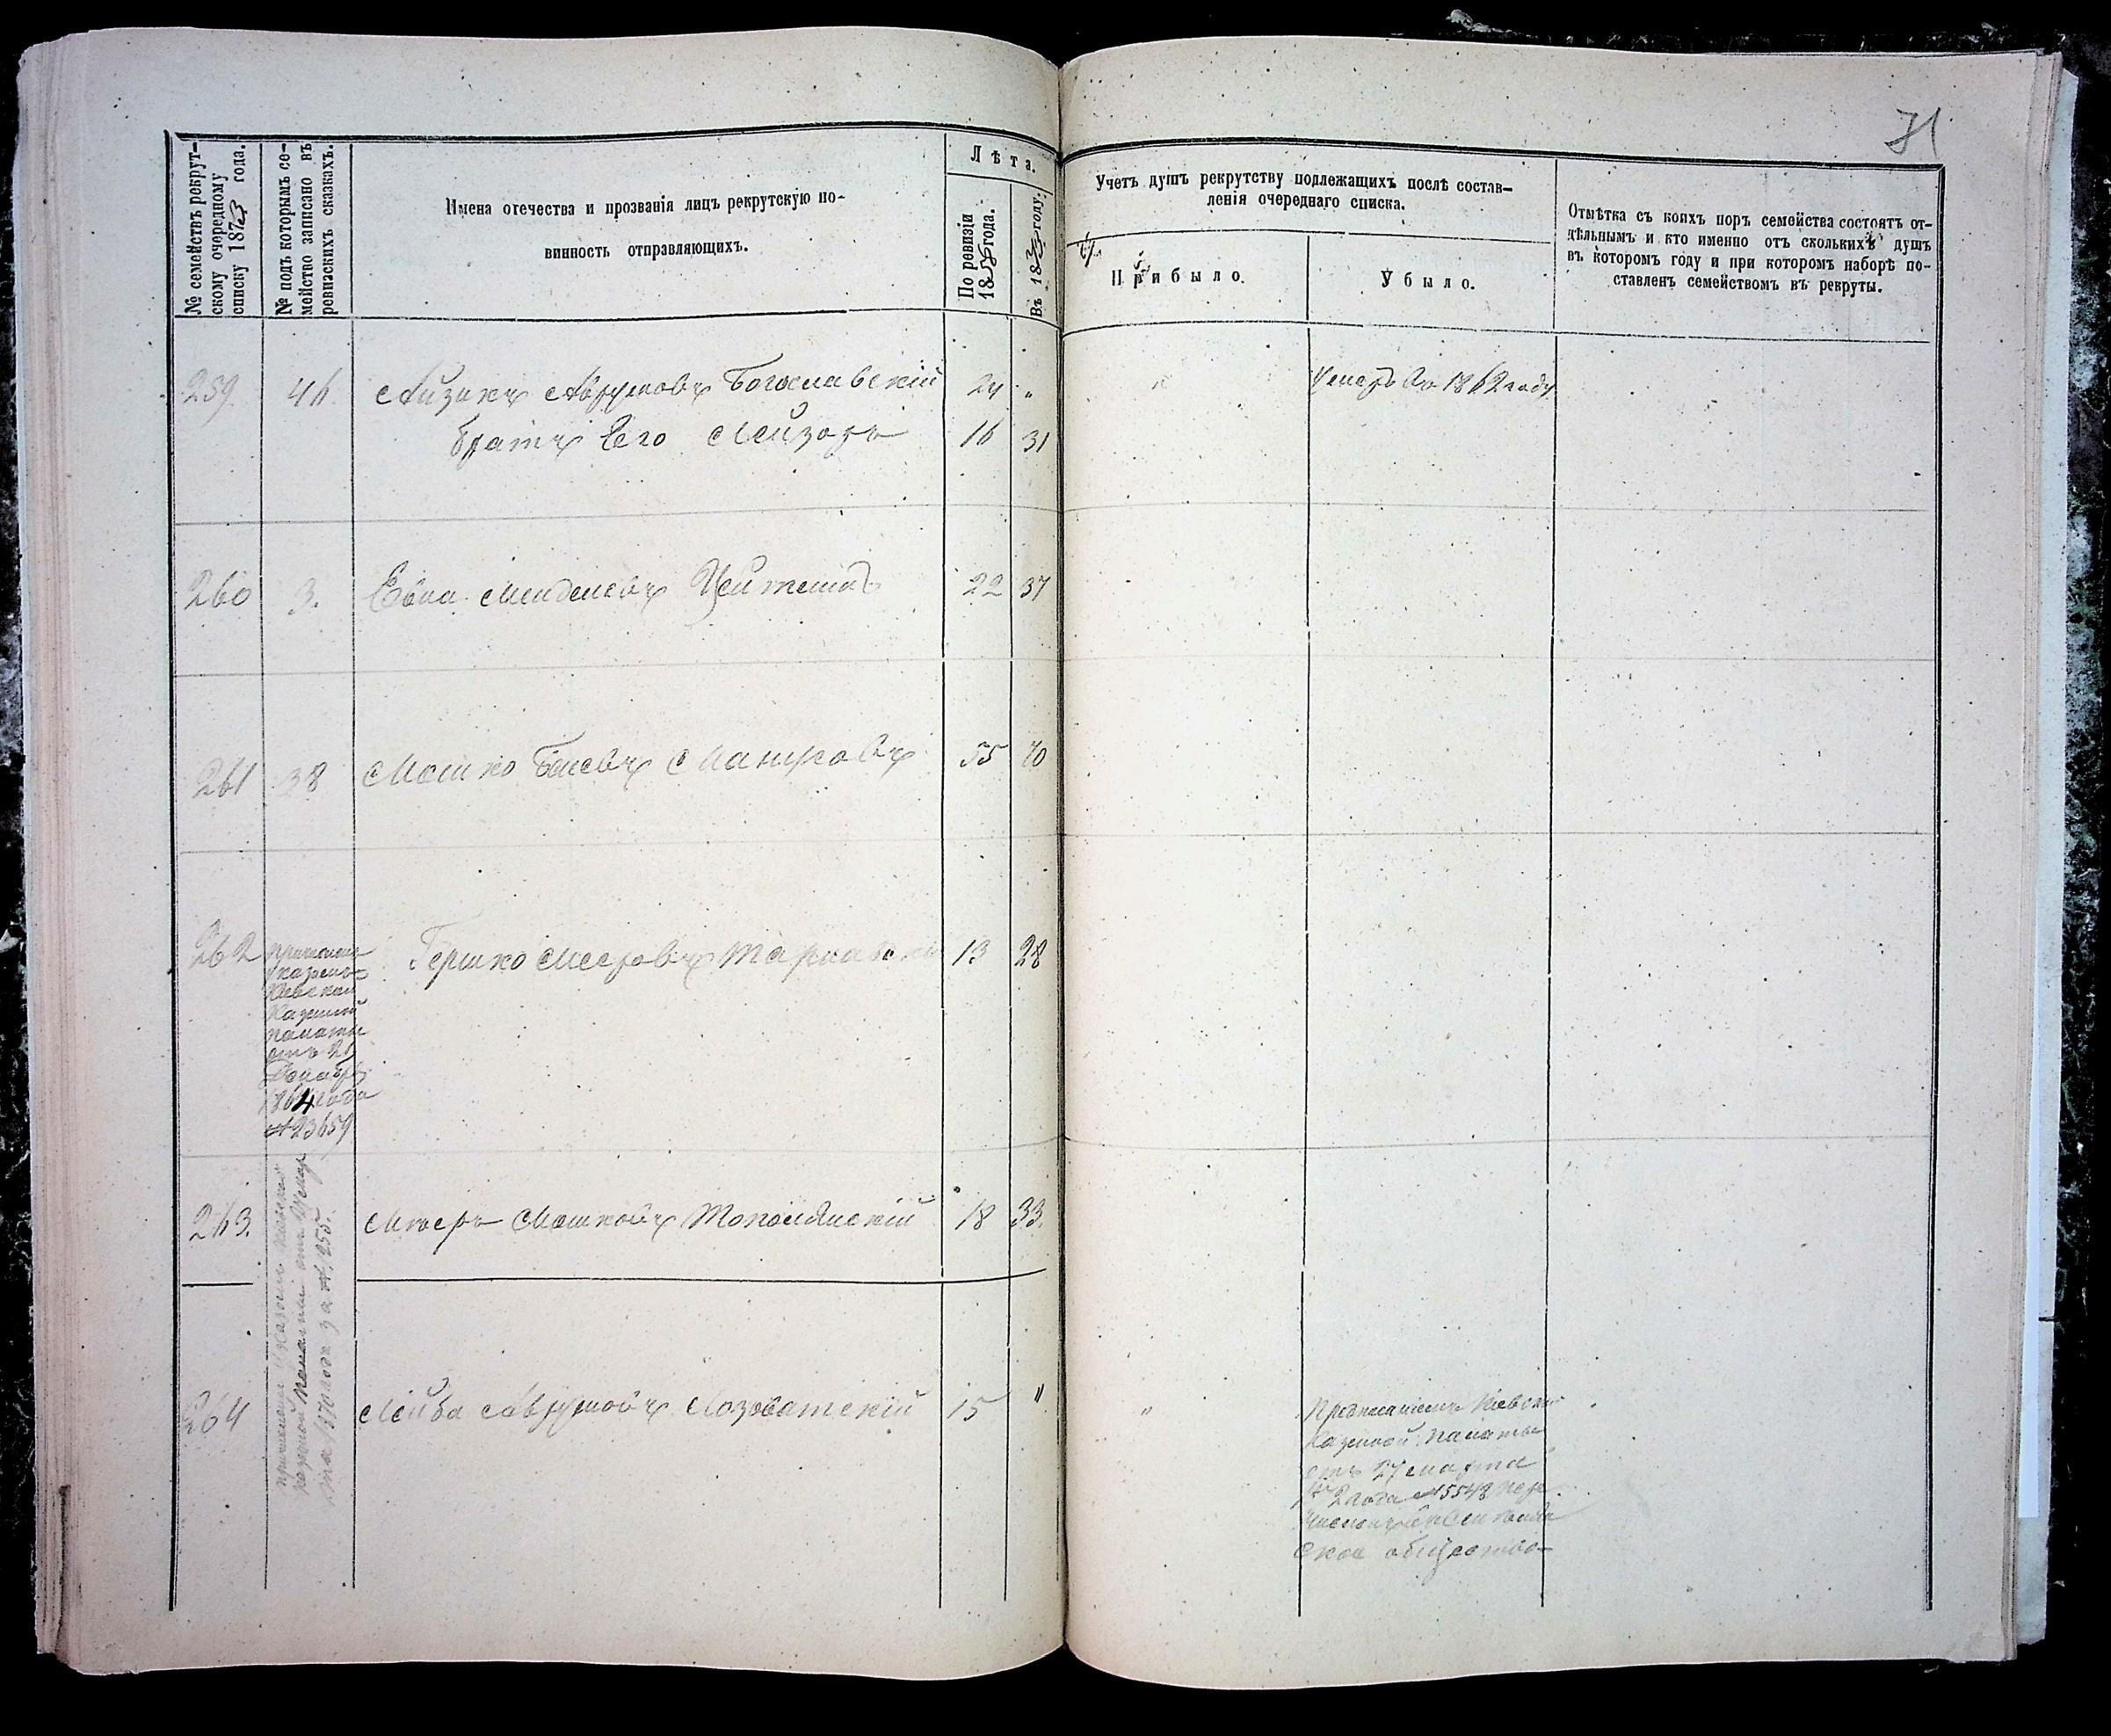 71
№ семействъ рекрут-
скому очередному
списку 1873 года.
№ подъ которымъ се-
мейство записано въ
ревизскихъ сказкахъ.
Имена отечества и прозванія лицъ рекрутскую по-
винность отправляющихъ.
Лѣта.
По ревизіи
1858 года.
Въ 1873 году.
Учетъ душъ рекрутству подлежащихъ послѣ состав-
ленія очереднаго списка.
Прибыло.
Убыло.
Отмѣтка съ коихъ поръ семейства состоятъ от-
дѣльнымъ и кто именно отъ сколькихъ душъ
въ котором году и при котором наборѣ по-
ставленъ семействомъ въ рекруты.
259. 46 Айзикъ Аврумовъ Богославскій 24 " " Умеръ въ 1862 году
братъ Его Лейзоръ 16 31
260 3. Евна Менделевъ 22 37
261 38 Мошко 55 70
262 Гершко Мееровъ 13 28
Причислен
указомъ
Кіевской
Казенной
палаты
отъ 21
Декабря
1864 года
№ 23659
263. Мееръ Мошковъ 18 33.
причислен указомъ Кіевской
казенной палаты отъ
1870 года за № 255.
264 Лейба Аврумовъ Лозоватскій 15 " "
Предписаніемъ Кіевской
Казенной палаты
отъ 27 марта
1872 года № 5548 пере-
численъ въ
ское общество